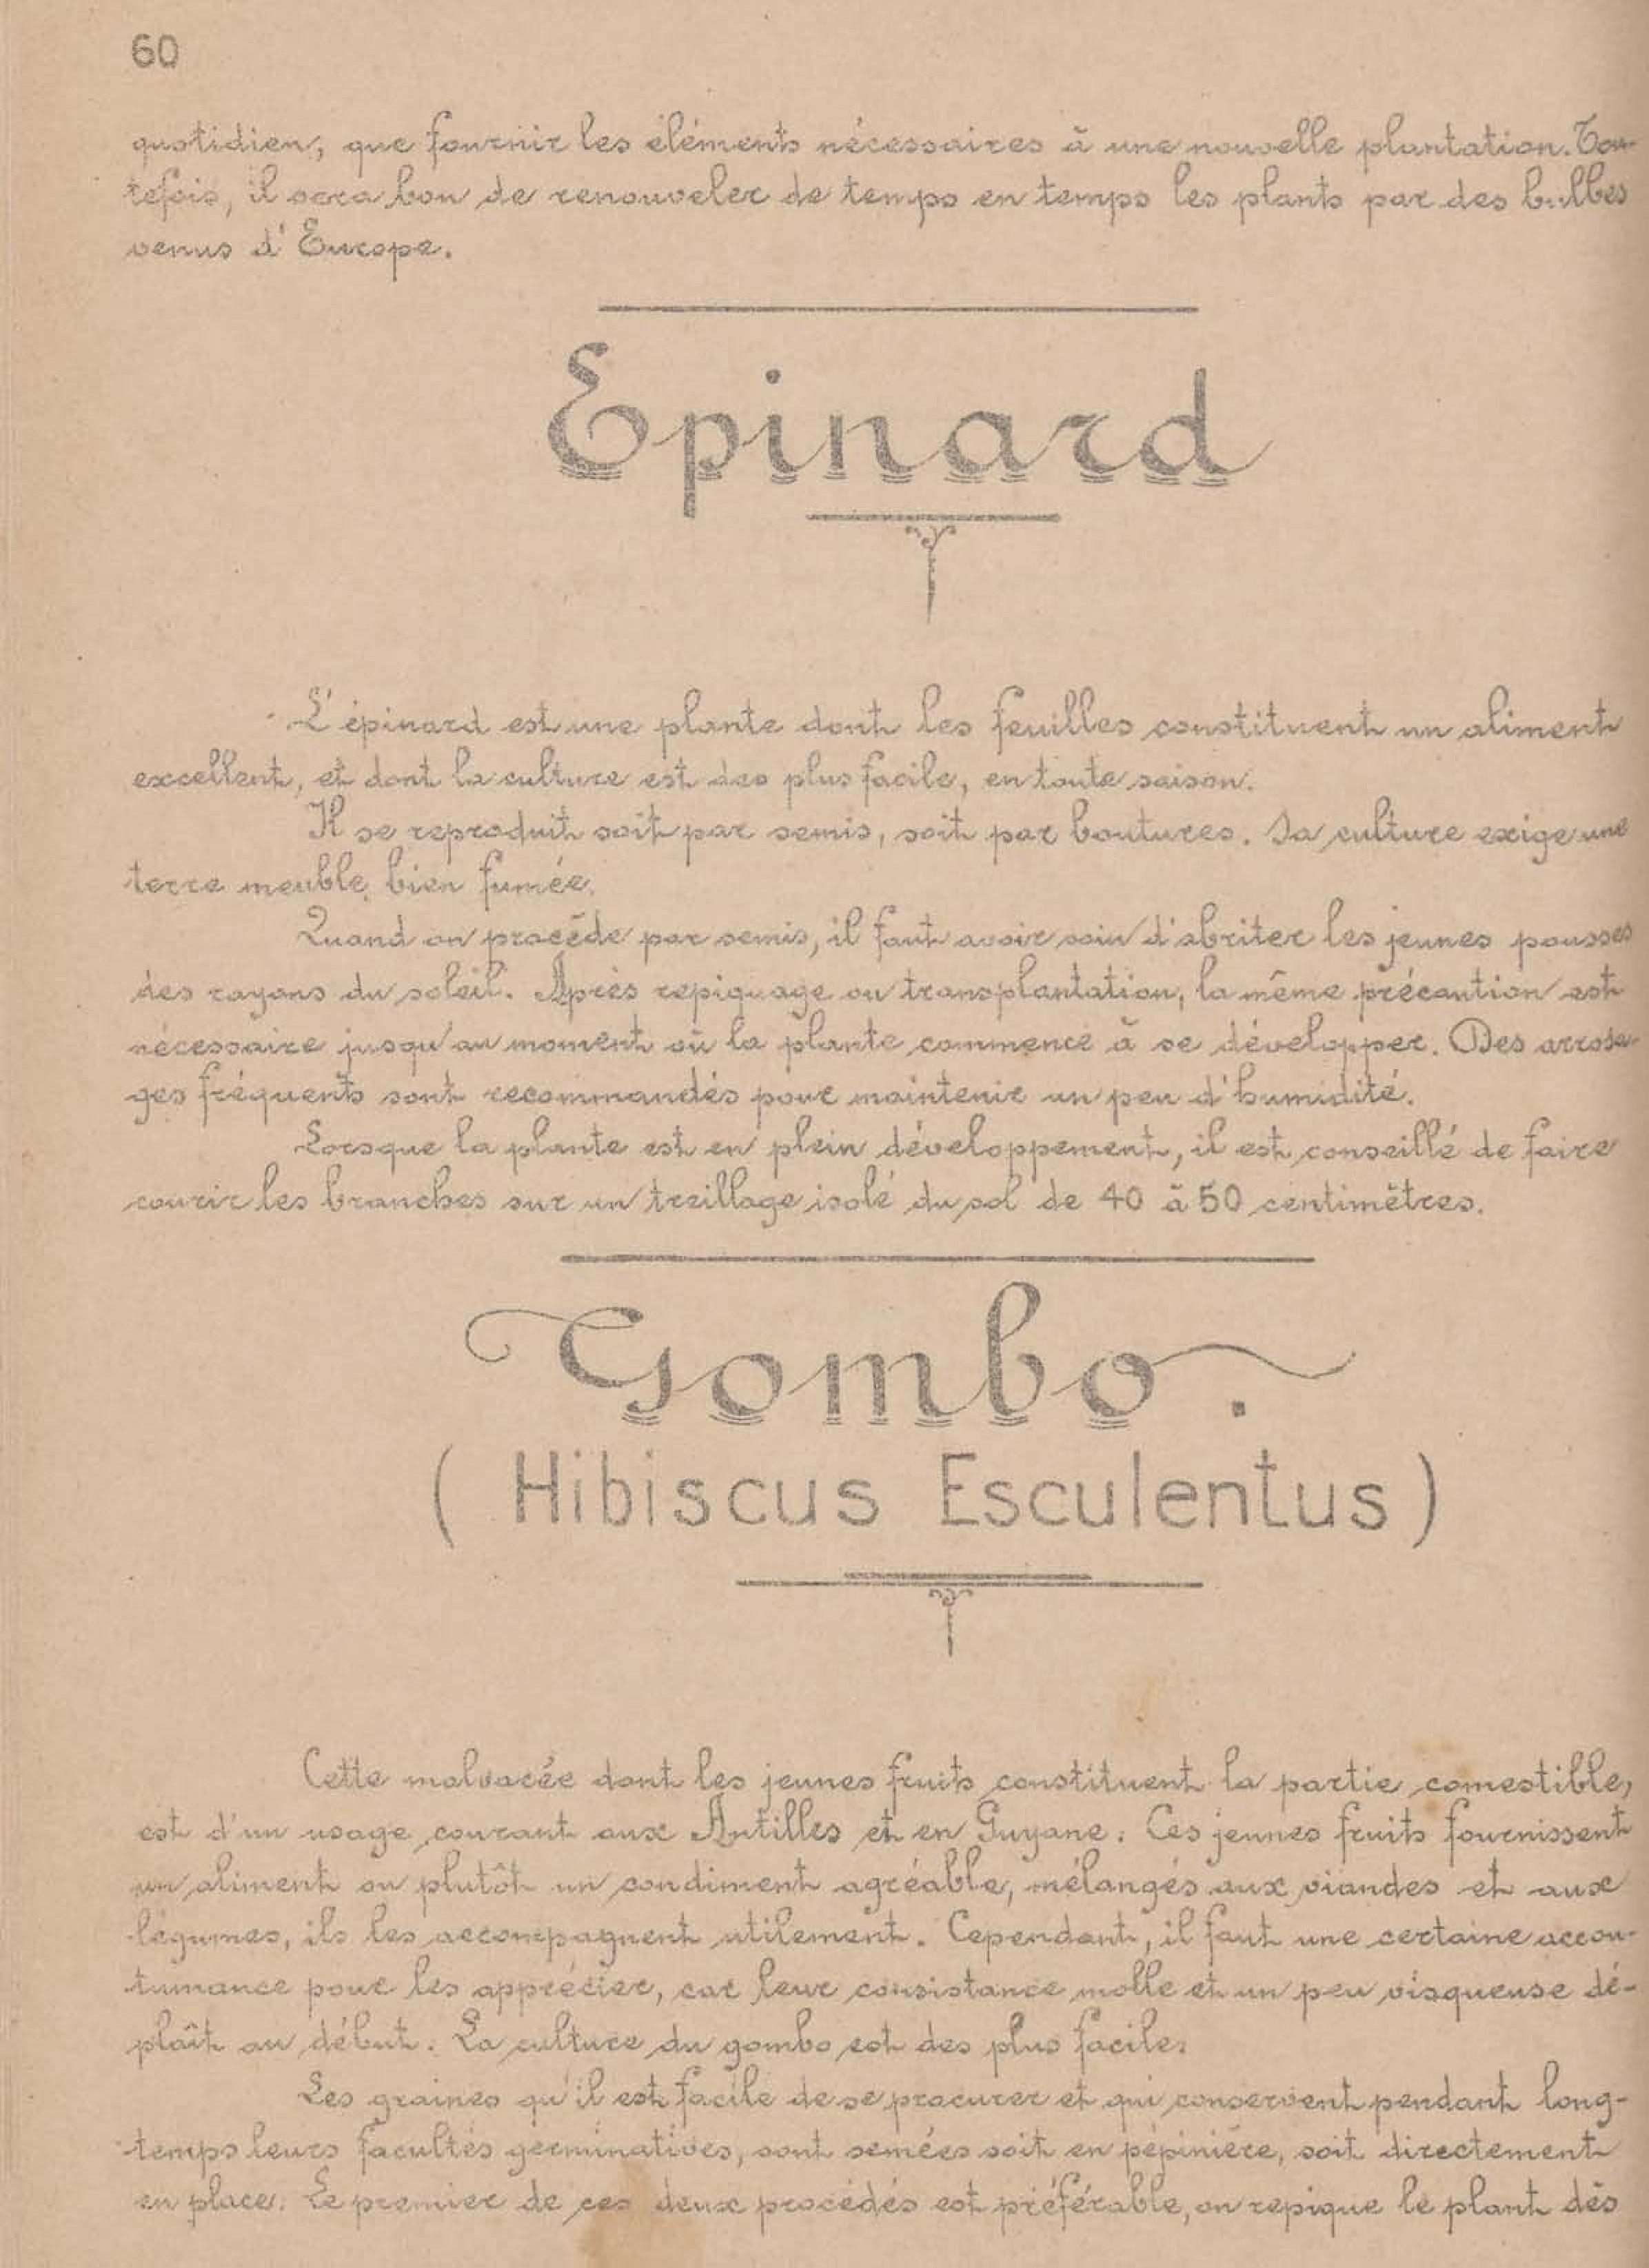 60
quotidien, que fournir les éléments nécessaires à une nouvelle plantation. Tou-
tefois, il sera bon de renouveler de temps en temps les plants par des bulbes
venus d'Europe.
Epinard
L'épinard est une plante dont les feuilles constituent un aliment
excellent, et dont la culture est des plus facile, en toute saison.
Il se reproduit soit par semis, soit par boutures. Sa culture exige une
terre meuble, bien fumée.
Quand on procède par semis, il faut avoir soin d'abriter les jeunes pousses
des rayons du soleil. Après repiquage ou transplantation, la même précaution est
nécessaire jusqu'au moment où la plante commence à se développer. Des arrosa-
ges fréquents sont recommandés pour maintenir un peu d'humidité.
Lorsque la plante est en plein développement, il est conseillé de faire
courir les branches sur un treillage isolé du sol de 40 à 50 centimètres.
Gombo.
( Hibiscus Esculentus )
Cette malvacée dont les jeunes fruits constituent la partie comestible,
est d'un usage courant aux Antilles et en Guyane. Ces jeunes fruits fournissent
un aliment ou plutôt un condiment agréable, mélangés aux viandes et aux
légumes, ils les accompagnent utilement. Cependant, il faut une certaine accou-
tumance pour les apprécier, car leur consistance molle et un peu visqueuse dé-
plaît au début. La culture du gombo est des plus facile.
Les graines qu'il est facile de se procurer et qui conservent pendant long-
temps leurs facultés germinatives, sont semées soit en pépinière, soit directement
en place. Le premier de ces deux procédés est préférable, on repique le plant dès